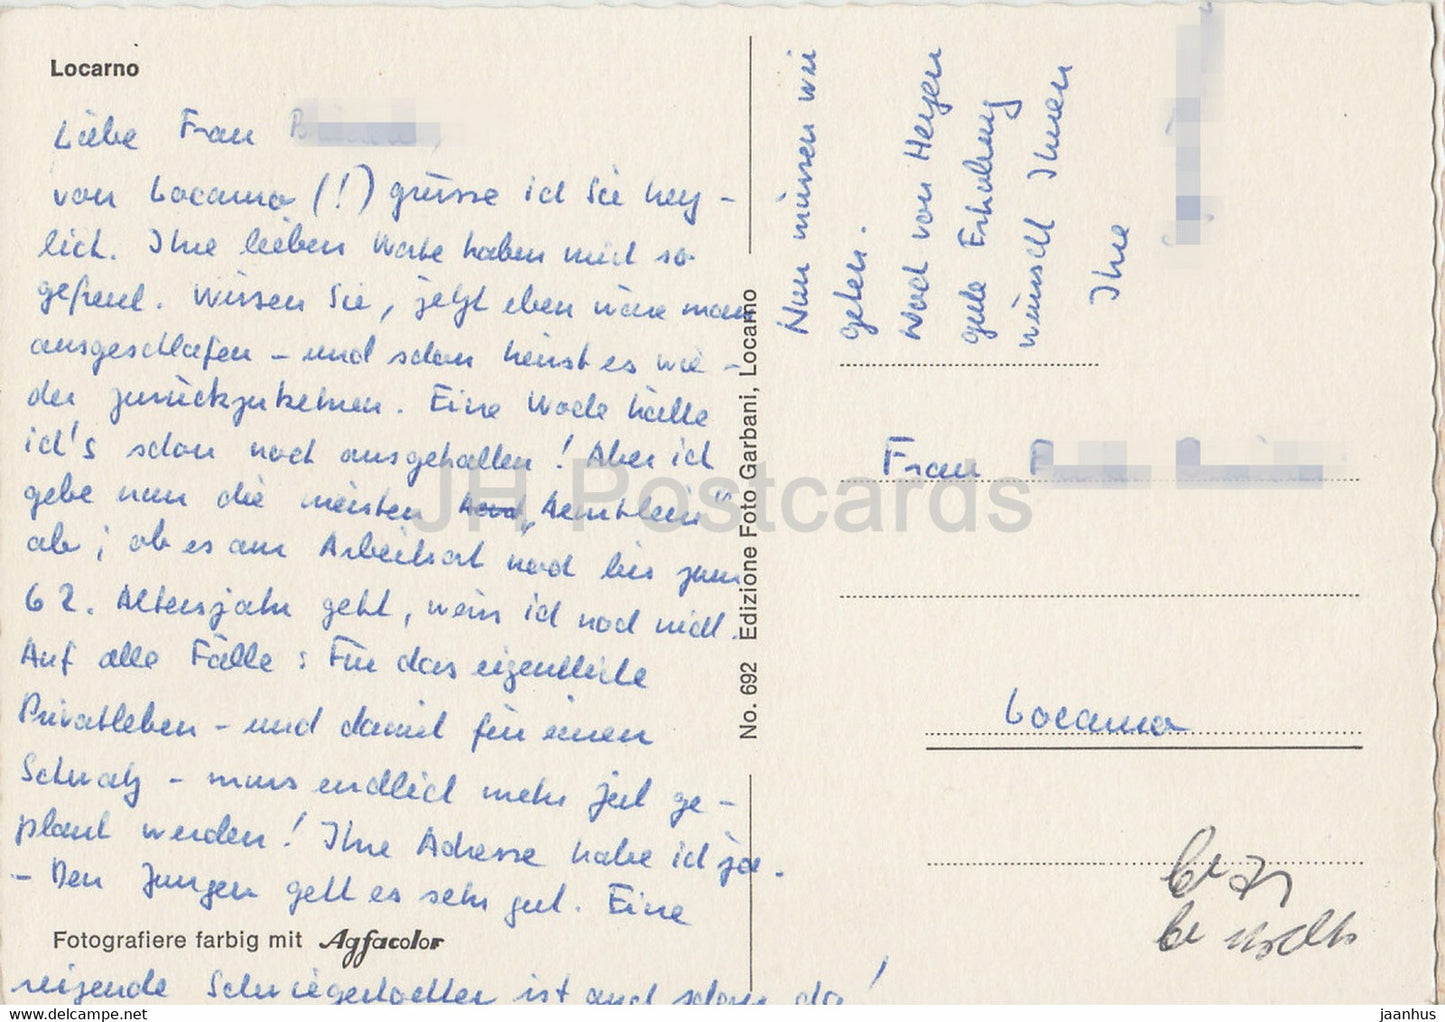 Locarno
Liebe Frau
von Locarno (!) grüsse ich Sie herz-
lich. Ihre lieben Worte haben mich so
gefreut. Wissen Sie, jetzt eben wäre man
ausgeschlafen – und schon heisst es wie-
der zurückzukehren. Eine Woche hätte
ich's schon noch ausgehalten! Aber ich
gebe nun die meisten „Aemtlein"
ab; ob es am Arbeitsort noch bis zum
62. Altersjahr geht, weiss ich noch nicht.
Auf alle Fälle: Für das eigentliche
Privatleben – und damit für einen
Schwatz – muss endlich mehr Zeit ge-
plant werden! Ihre Adresse habe ich ja.
– Den Jungen geht es sehr gut. Eine
Fotografiere farbig mit Agfacolor
reizende Schwiegertochter ist auch schon da!
No. 692 Edizione Foto Garbani, Locarno
Nun müssen wir
gehen.
Und von Herzen
gute Erholung
wünscht Ihnen
Ihre
Frau
Locarno
JH Postcards
jaanhus